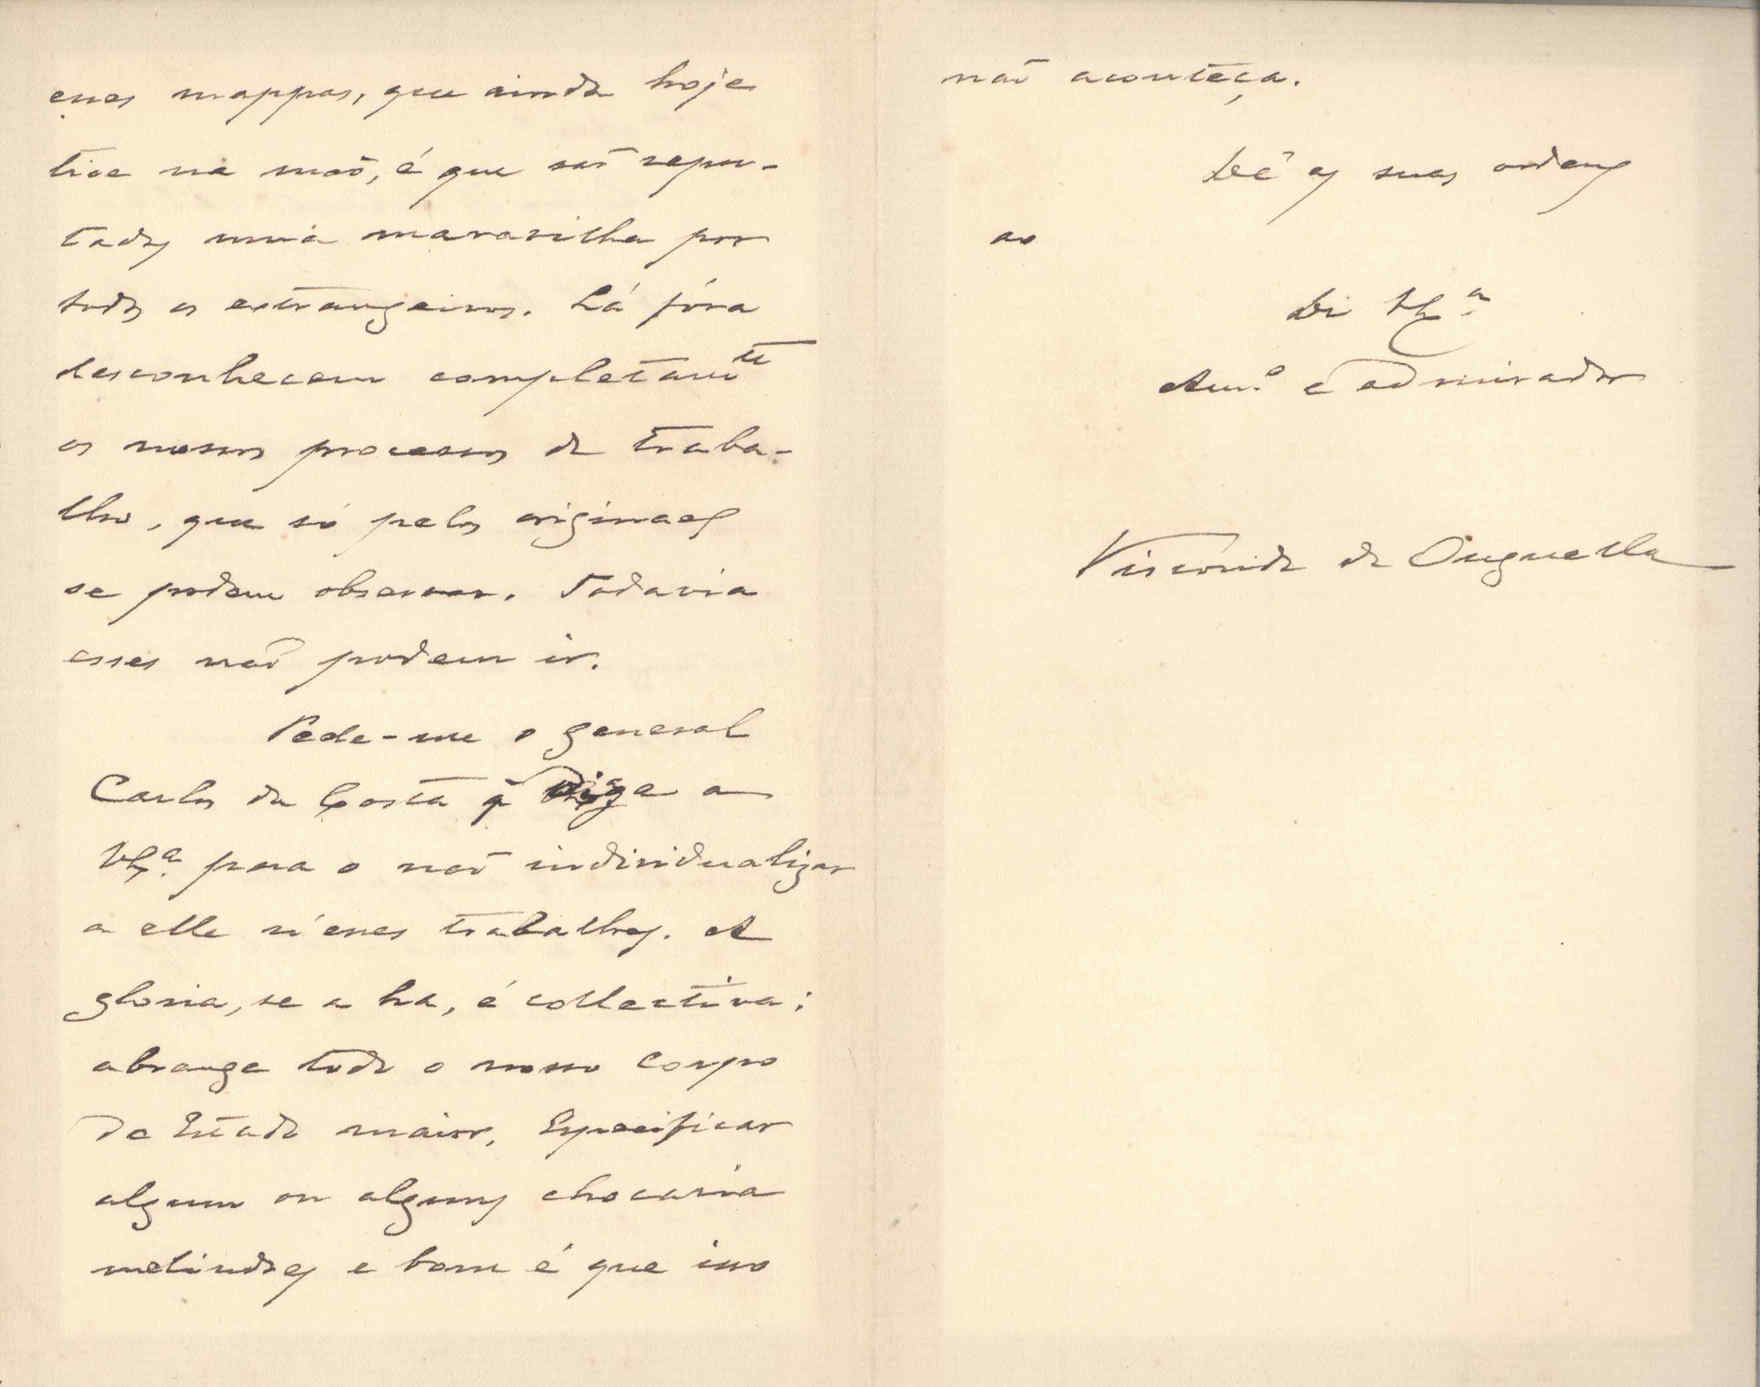 esses mappas, que ainda hoje
tive na mão, é que são repu-
tados uma maravilha por
todos os estrangeiros. Lá fóra
desconhecem completamte
os nossos processos de traba-
lho, que só pelos originaes
se podem observar. Todavia
esses não podem ir.
Pede-me o general
Carlos da Costa q̃ diga a
V. Exa. para o não individualizar
a elle n'esses trabalhos. A
gloria, se a ha, é collectiva;
abrange todo o nosso corpo
de Estado maior. Especificar
algum ou alguns chocaria
melindres e bom é que isso
não aconteça.
Dê as suas ordens
ao
De V. Exa.
Amo. e admirador
Visconde de Ouguella